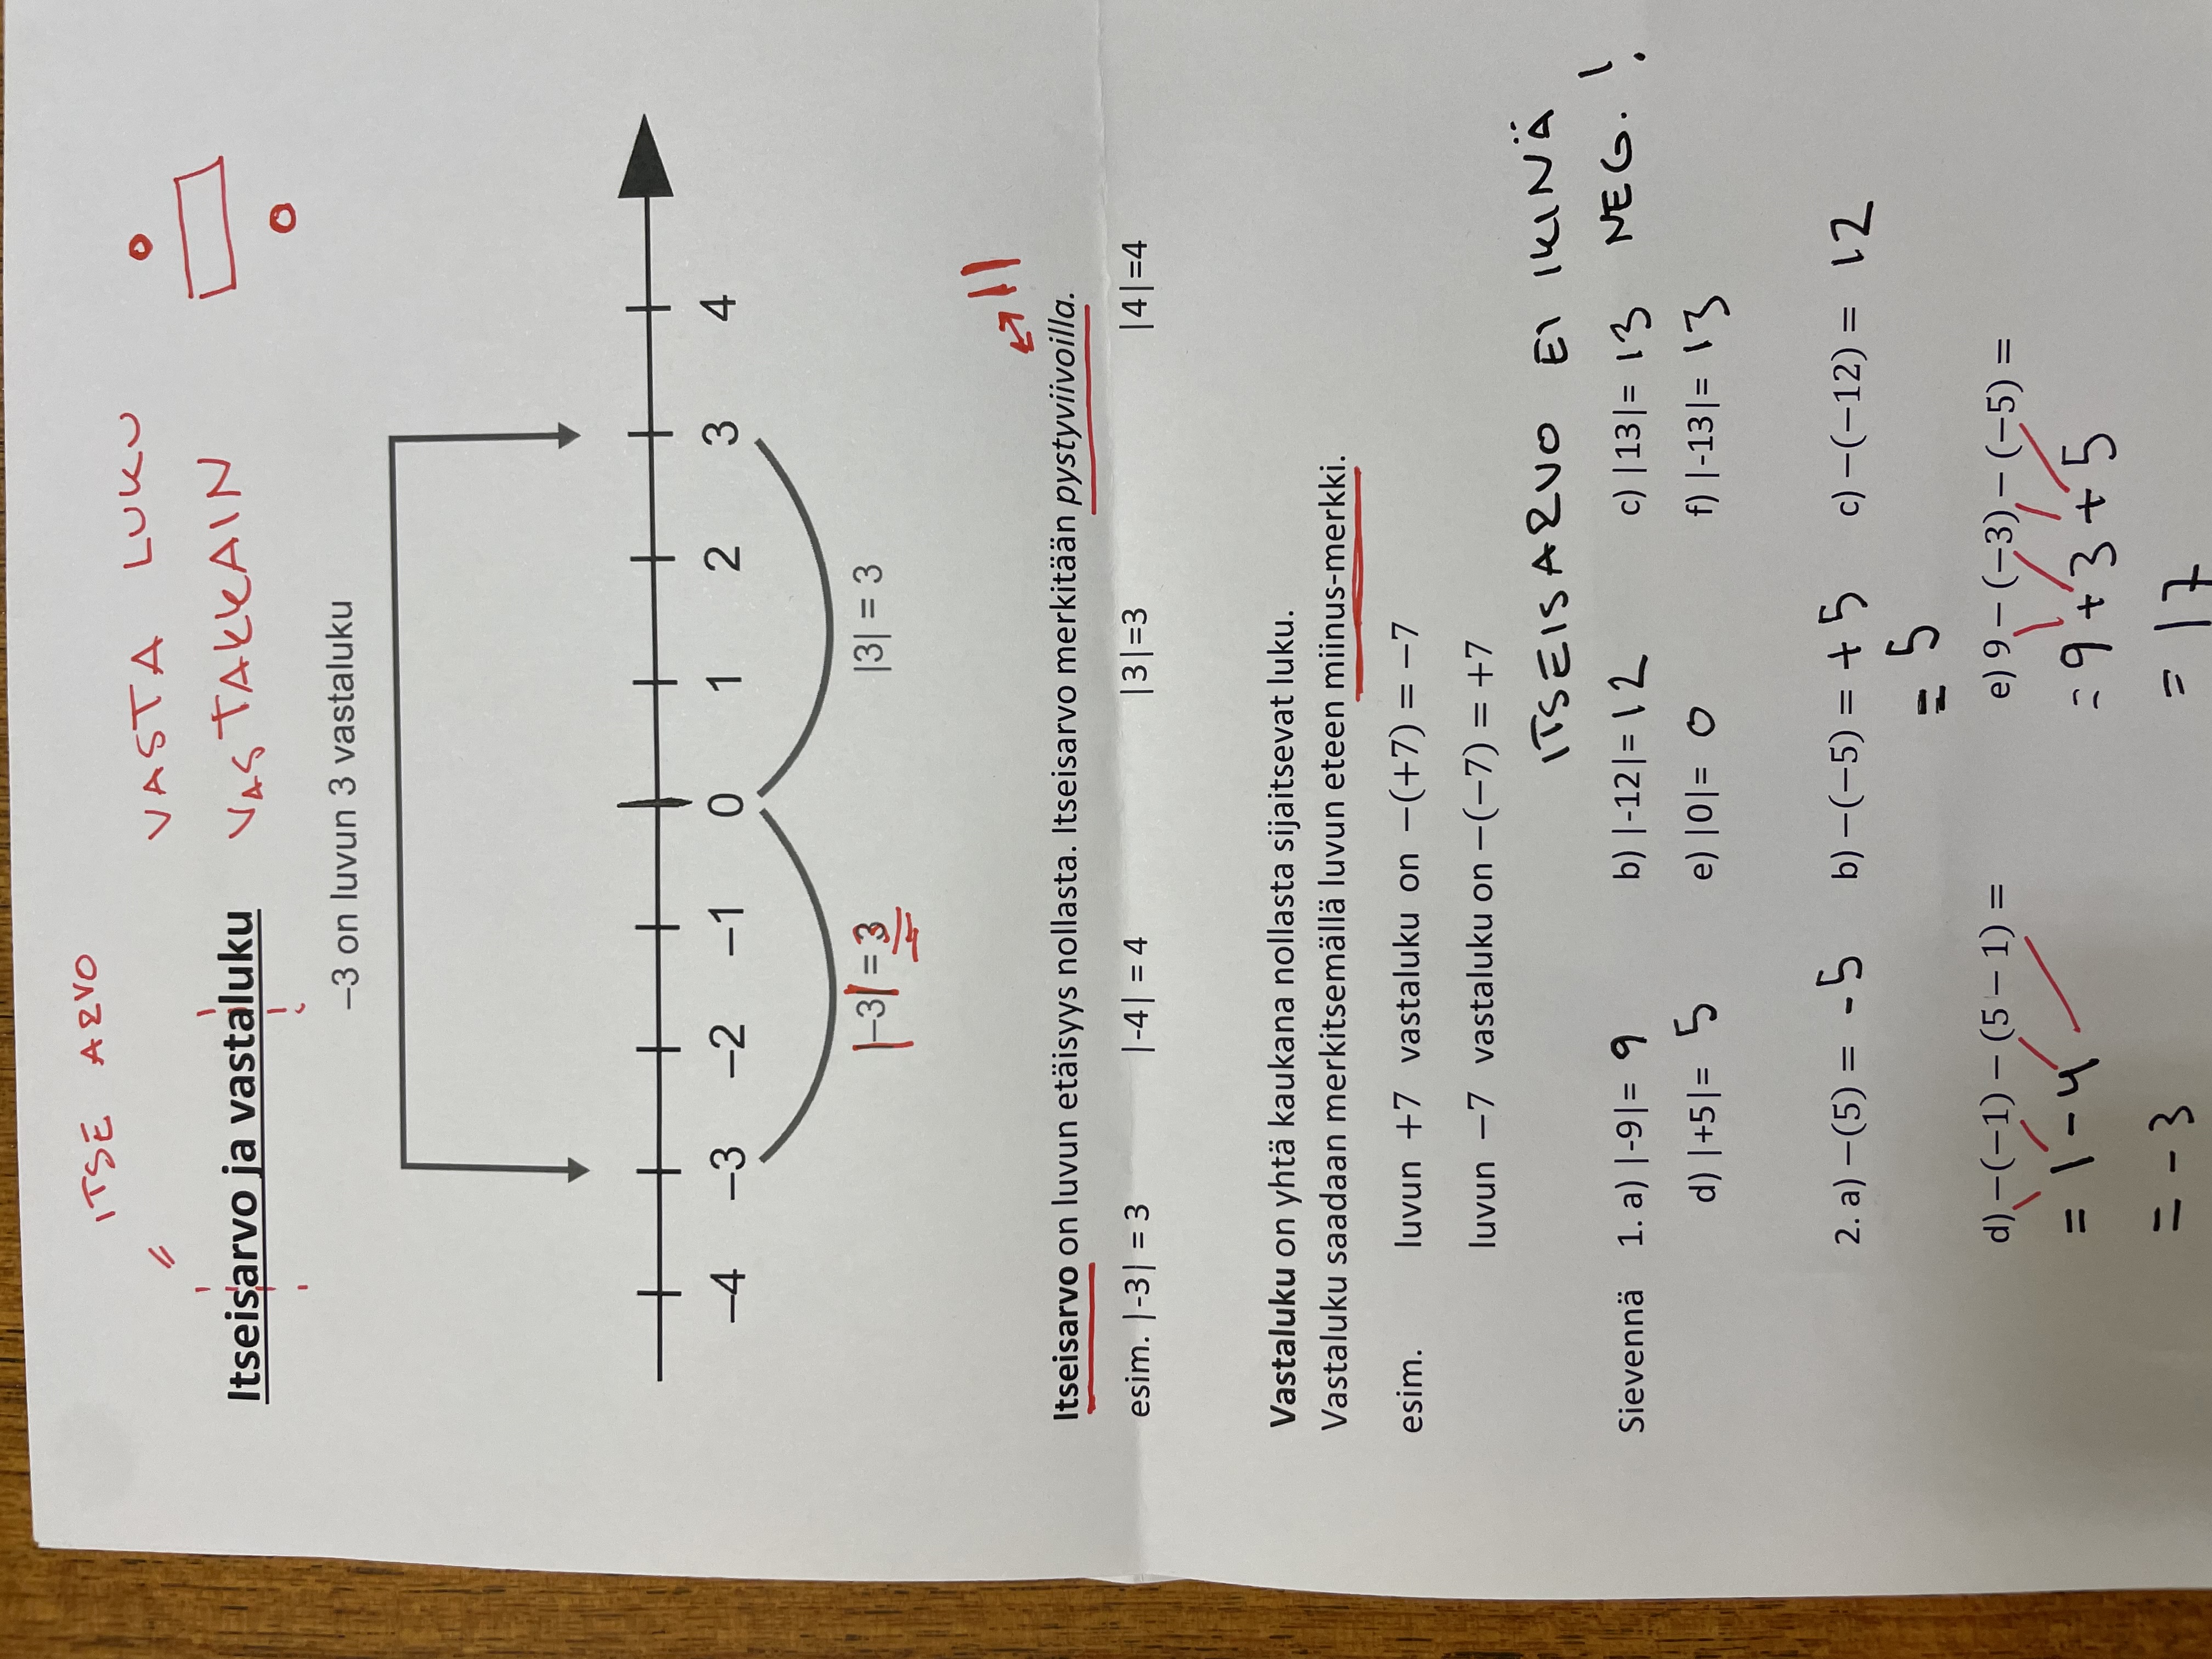 ITSE ARVO
VASTA LUKU
Itseisarvo ja vastaluku
VASTAKKAIN
−3 on luvun 3 vastaluku
−4 −3 −2 −1 0 1 2 3 4
|−3| = 3 |3| = 3
Itseisarvo on luvun etäisyys nollasta. Itseisarvo merkitään pystyviivoilla.
esim. |-3| = 3 |-4| = 4 |3|=3 |4|=4
Vastaluku on yhtä kaukana nollasta sijaitsevat luku.
Vastaluku saadaan merkitsemällä luvun eteen miinus-merkki.
esim. luvun +7 vastaluku on −(+7) = −7
luvun −7 vastaluku on −(−7) = +7
ITSEISARVO EI IKINÄ
NEG. !
Sievennä 1. a) |-9|= 9 b) |-12|= 12 c) |13|= 13
d) |+5|= 5 e) |0|= 0 f) |-13|= 13
2. a) −(5) = -5 b) −(−5) = +5 c) −(−12) = 12
= 5
d) −(−1) − (5 − 1) = e) 9 − (−3) − (−5) =
= 1 - 4 = 9 + 3 + 5
= -3 = 17